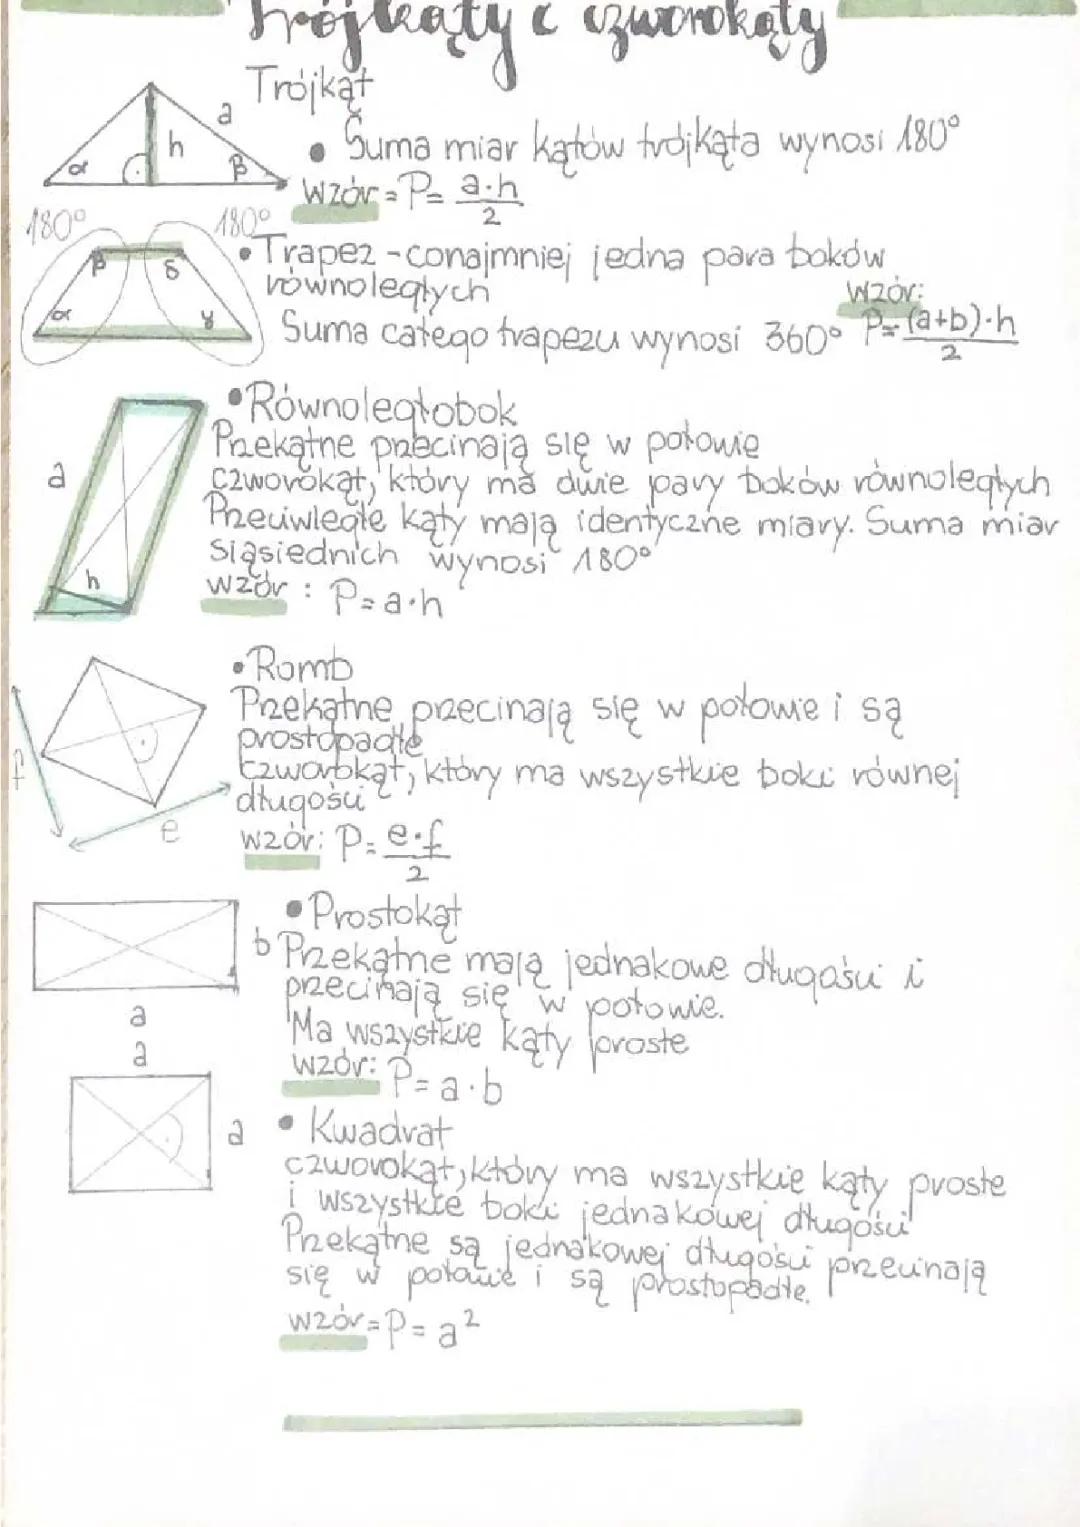 Trójkąty i czworokąty
Trójkąt
a
h
α
β
• Suma miar kątów trójkąta wynosi 180°
Wzór = P = a·h
2
180°
180°
β
δ
α
γ
• Trapez - conajmniej jedna para boków
równoległych
Wzór:
Suma całego trapezu wynosi 360° P = (a+b)·h
2
• Równoległobok
Przekątne przecinają się w połowie
a
czworokąt, który ma dwie pary boków równoległych
Przeciwległe kąty mają identyczne miary. Suma miar
siąsiednich wynosi 180°
h
wzór : P = a·h
• Romb
Przekątne przecinają się w połowie i są
prostopadłe
czworokąt, który ma wszystkie boki równej
długości
f
e
wzór: P = e·f
2
• Prostokąt
b
Przekątne mają jednakowe długości i
przecinają się w połowie.
a
Ma wszystkie kąty proste
a
wzór: P = a·b
a
• Kwadrat
czworokąt, który ma wszystkie kąty proste
i wszystkie boki jednakowej długości
Przekątne są jednakowej długości przecinają
się w połowie i są prostopadłe.
wzór = P = a²